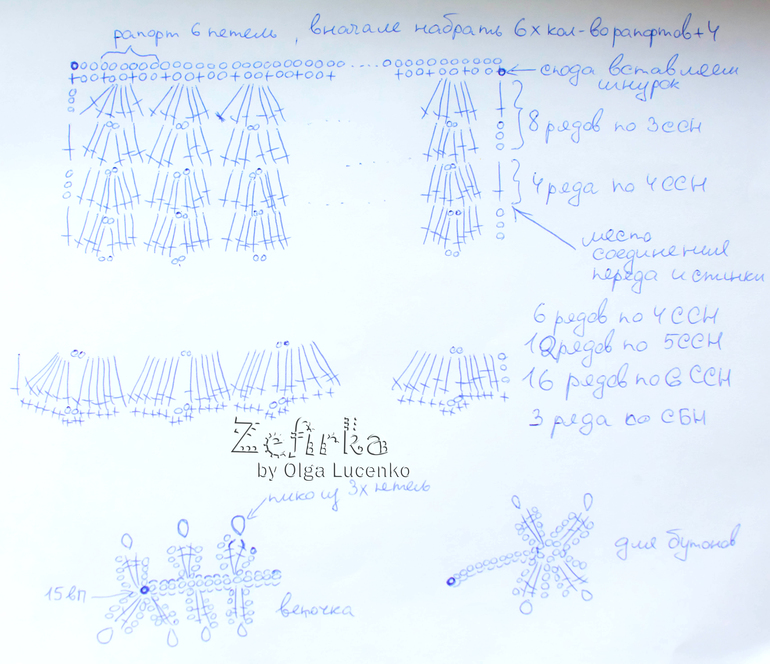 рапорт 6 петель, вначале набрать 6 х кол-во рапортов+4
сюда вставляем
шнурок
8 рядов по 3ССН
4 ряда по 4ССН
место
соединения
переда и спинки
6 рядов по 4ССН
10 рядов по 5ССН
16 рядов по 6 ССН
3 ряда по СБН
Zefirka
by Olga Lucenko
пико из 3х петель
для бутонов
15 вп
веточка